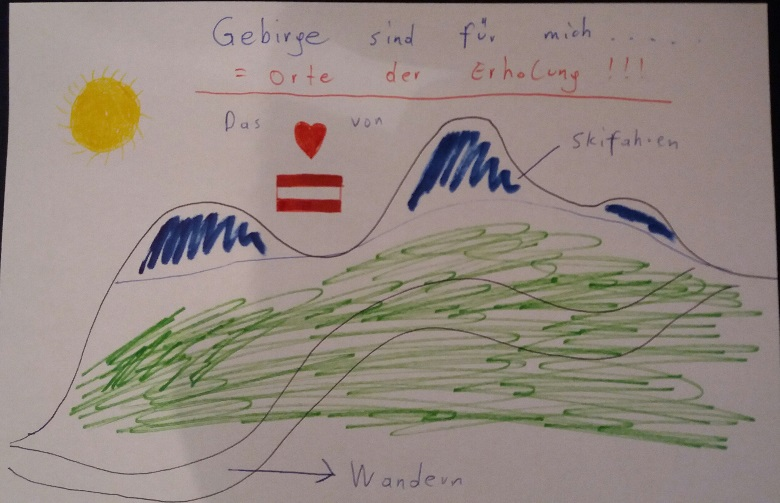 Gebirge sind für mich.....
= Orte der Erholung !!!
Das ♥ von
Skifahren
Wandern